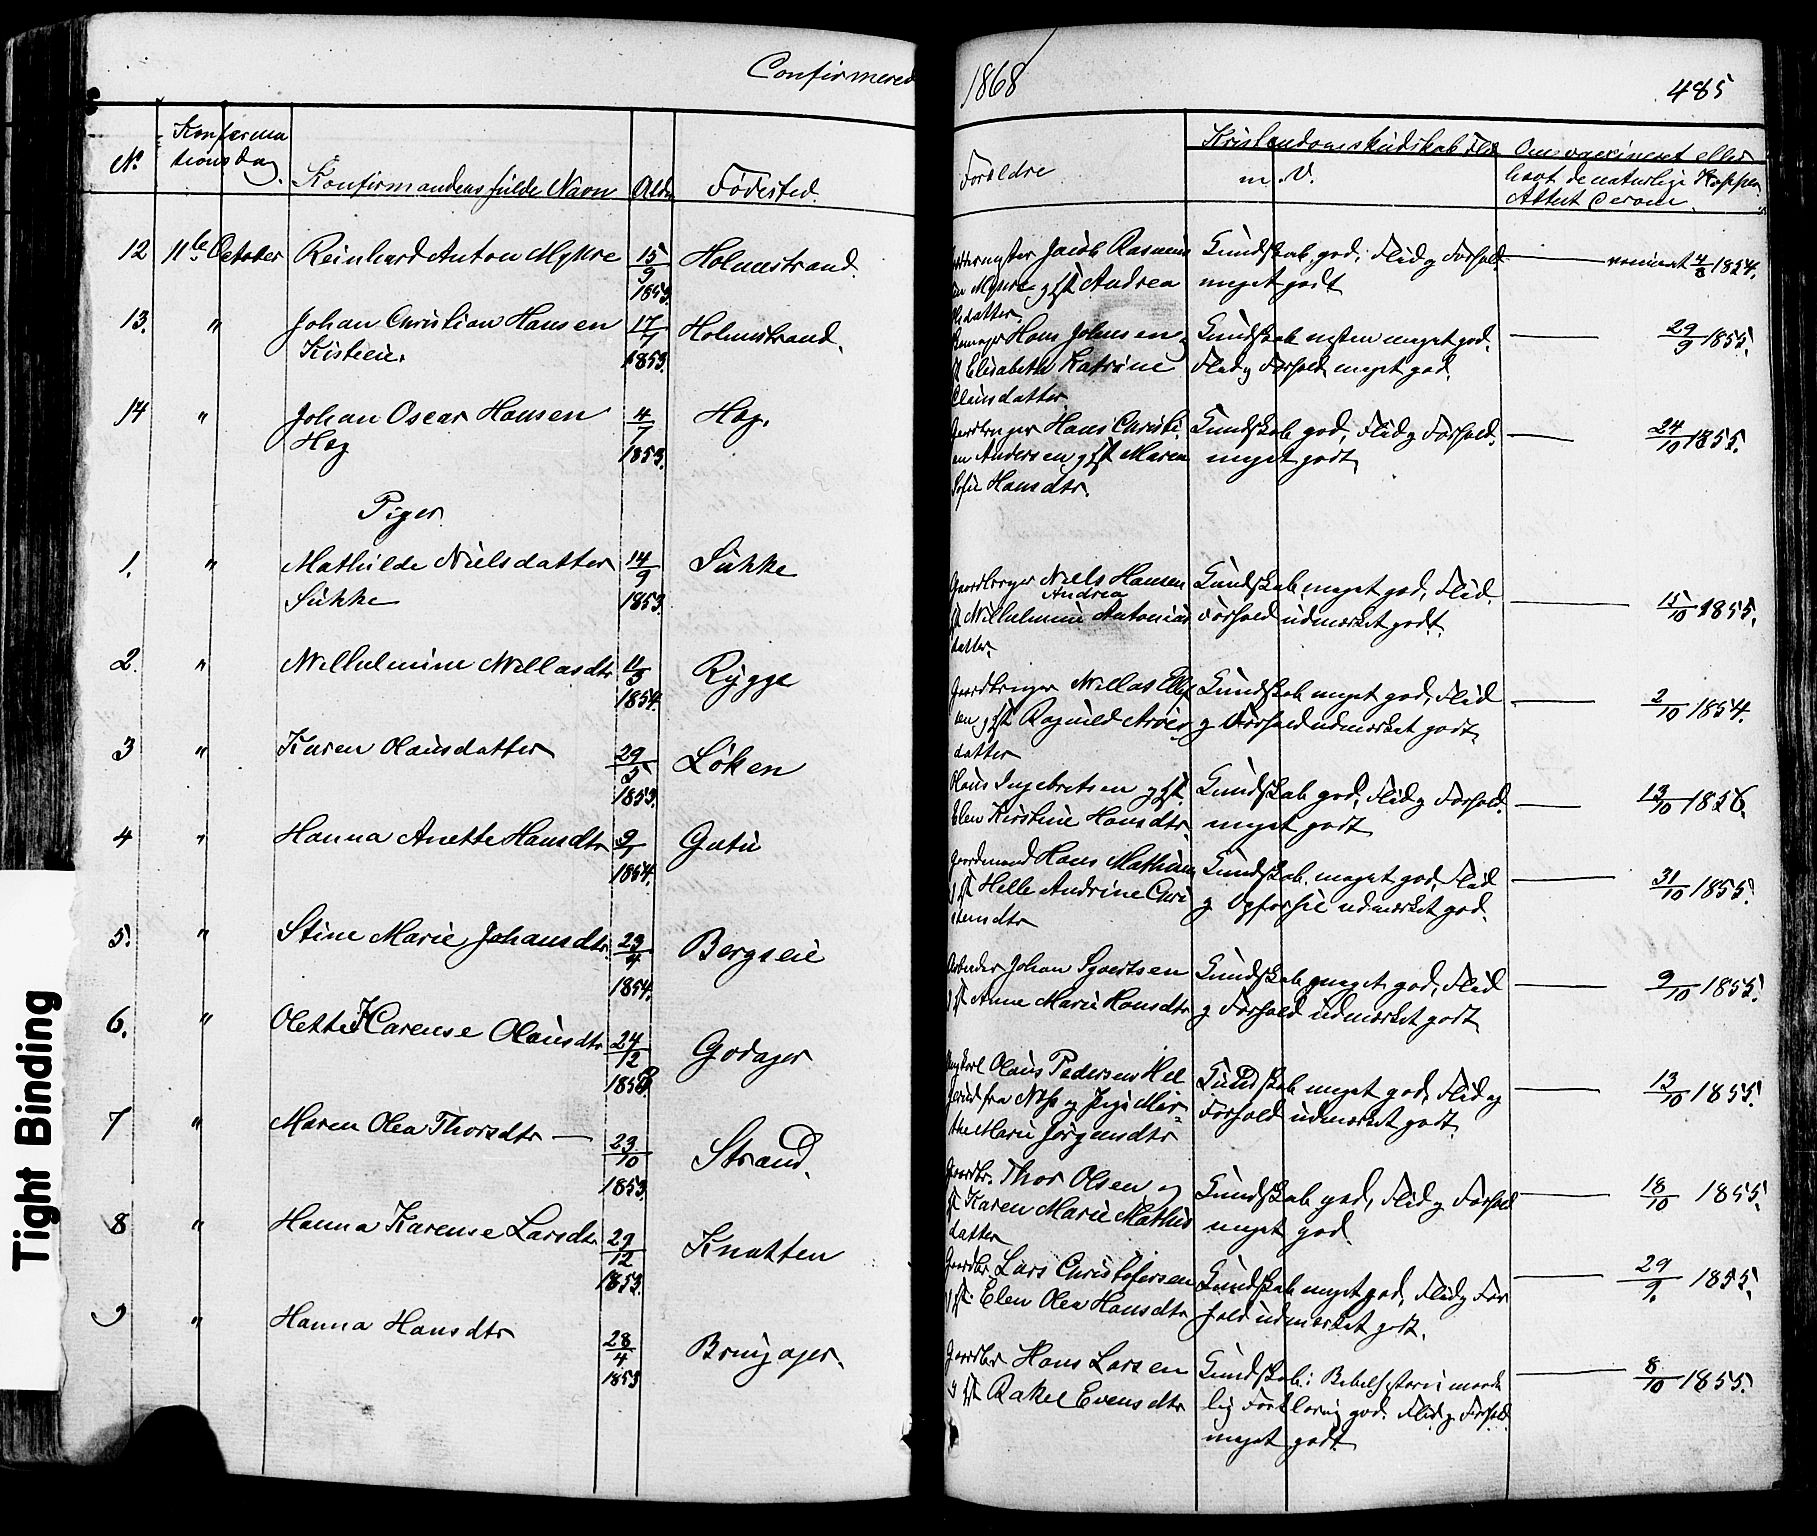 Confirmered
1868
485
No.
Konfirma
tionsdag.
Konfirmandens fulde Navn
Alder
Fødested.
Foreldre
Kristendomskundskab Flid
m. V.
Om vaccineret eller
havt de naturlige Kopper
Attest derom.
12 11te October Reinhard Anton Myhre 15/9 1853. Holmestrand.
Jacob Rasmus
Myhre og H Andrea
datter.
Kundskab god, Flid og Forhold
meget godt
vaccineret 4/8 1854.
13. " Johan Christian Hansen 17/7 1853. Holmestrand.
Kisteeie.
Hans Johnsen
H Elisabeth Katrine
Clausdatter
Kundskab næsten meget god.
Flid og Forhold meget god.
29/9 1855.
14 " Johan Oscar Hansen 4/7 1853. Hag.
Hag
Gaardbruger Hans Christi
an Andersen og H Maren
Sofie Hansdtr.
Kundskab god, Flid og Forhold
meget godt
24/10 1855.
Piger
1. " Mathilde Nielsdatter 14/9 1853. Sukke
Sukke
Gaardbruger Niels Hansen
Andrea
H Wilhelmine Antonius
datter.
Kundskab meget god, Flid.
Forhold udmærket godt.
15/10 1855.
2. " Wilhelmine Willasdtr 11/3 1854. Rygge
Gaardbruger Willas Ellef
sen og H Ragnild
datter
Kundskab meget god, Flid
og Forhold udmærket godt.
2/10 1854.
3 " Karen Olausdatter 29/5 1853. Løken
Olaus Ingebretsen og H.
Elen Kirstine Hansdtr.
Kundskab god, Flid og Forhold
meget godt
13/10 1856.
4 " Hanna Anette Hansdtr 9/1 1854. Gutu
Gaardmand Hans Mathisen
og H Helle Andrine Chri
stensdtr
Kundskab meget god, Flid
og Opførsel udmærket god.
31/10 1855.
5. " Stine Marie Johansdtr. 23/4 1854. Bergseie
Arbeider Johan Syvertsen
og H Anne Marie Hansdtr
Kundskab meget god, Flid
og Forhold udmærket godt
9/10 1855.
6. " Olette Karense Olausdtr 24/12 1853. Godager
Ungkarl Olaus Pedersen Hel
fra og Pige Mar
the Marie Jørgensdtr
Kundskab meget god, Flid og
Forhold udmærket godt.
13/10 1855.
7 " Maren Olea Thorsdtr 23/10 1853. Strand.
Gaardbr. Thor Olsen og
H Karen Marie Mathis
datter
Kundskab god, Flid og Forhold
meget god.
18/10 1855.
8 " Hanna Karense Larsdtr 29/12 1853. Knatten
Gaardbr. Lars Christofersen
og H. Elen Olea Hansdtr
Kundskab meget god, Flid og For
hold udmærket godt.
29/9. 1855.
9 " Hanna Hansdtr 28/4 1853 Bruigager.
Gaardbr Hans Larsen
og H Rakel Evensdtr
Kundskab i Bibelhistorie maade
lig Forklaring god. Flid og Forhold
meget godt
8/10 1855.
Tight Binding